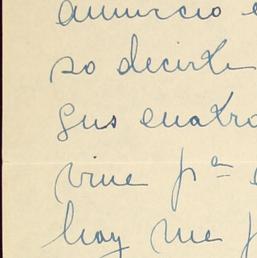 anuncio
so decirte
gus cuatro
vine pª
hay me